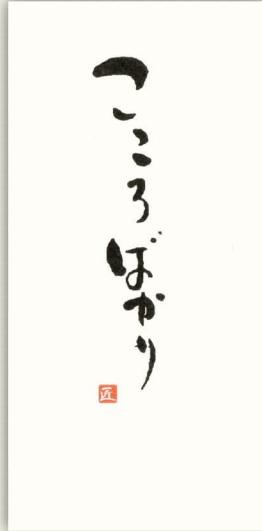 こころばかり
匠